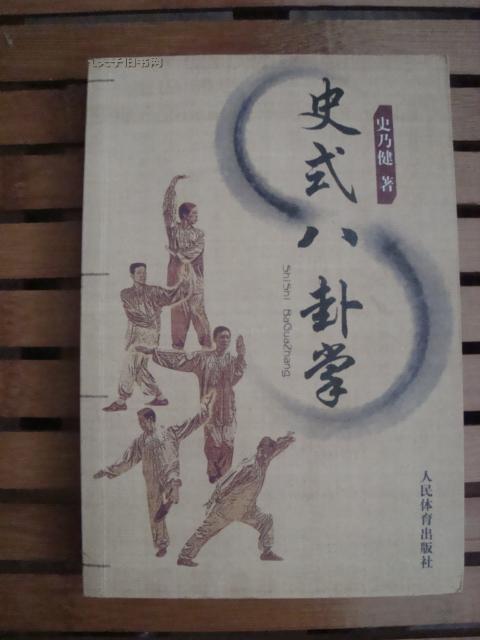 孔夫子旧书网
史式八卦掌
ShiShi BaGuaZhang
史乃健 著
人民体育出版社